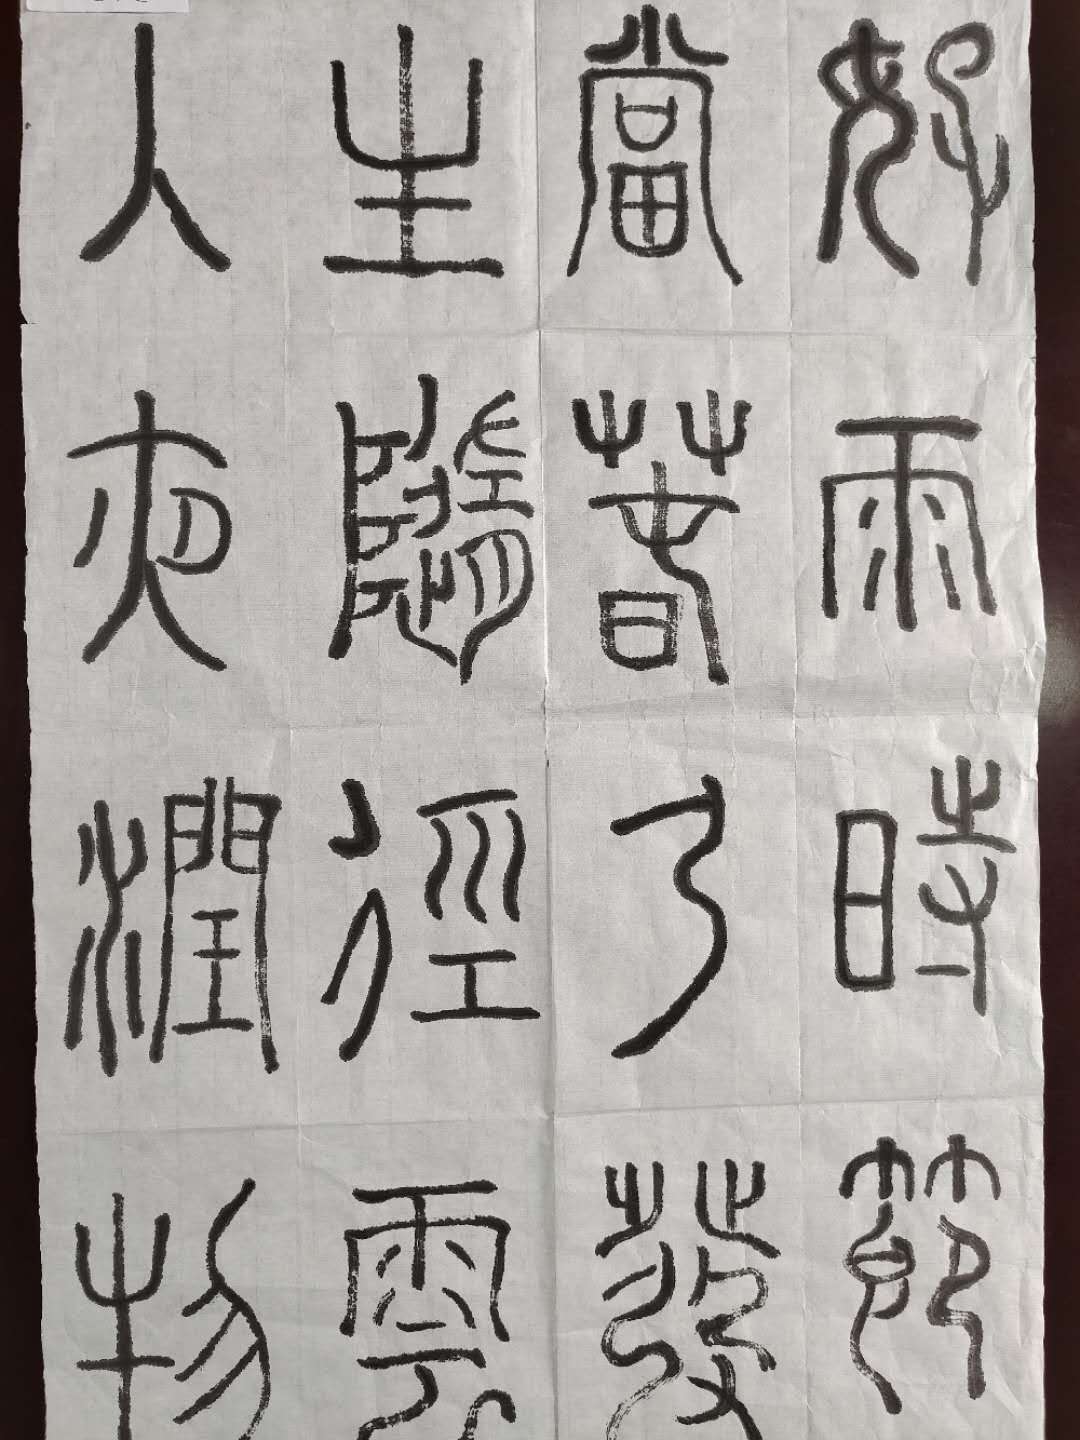 好雨時節
當春乃發
生隨徑雲
入夜潤物